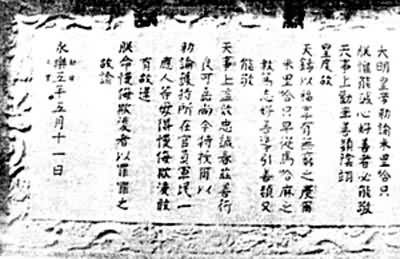 大明皇帝勅諭米里哈只
朕惟能誠心好善者必能敬
天事上勸率善類陰翊
皇度故
天錫以福享有無窮之慶爾
米里哈只早從馬哈麻之
教篤志好善導引善類又
能敬
天事上益效忠誠眷茲善行
良可嘉尚今特授爾以
勅諭護持所在官員軍民一
應人等毋得慢侮欺凌敢
有故違
朕命慢侮欺凌者以罪罪之
故諭
永樂五年五月十一日